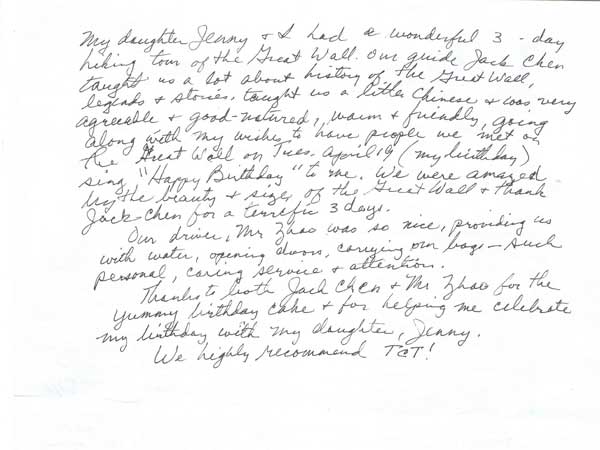 My daughter Jenny & I had a wonderful 3 - day
hiking tour of the Great Wall. Our guide Jack Chen
taught us a lot about history of the Great Wall,
legends & stories, taught us a little Chinese & was very
agreeable & good-natured, warm & friendly, going
along with my wishes to have people we met on
the Great Wall on Tues. April 19 (my birthday)
sing "Happy Birthday" to me. We were amazed
by the beauty & size of the Great Wall & thank
Jack Chen for a terrific 3 days.
Our driver, Mr Zhao was so nice, providing us
with water, opening doors, carrying our bags - such
personal, caring service & attention.
Thanks to both Jack Chen & Mr. Zhao for the
yummy birthday cake & for helping me celebrate
my birthday with my daughter, Jenny.
We highly recommend TCT!